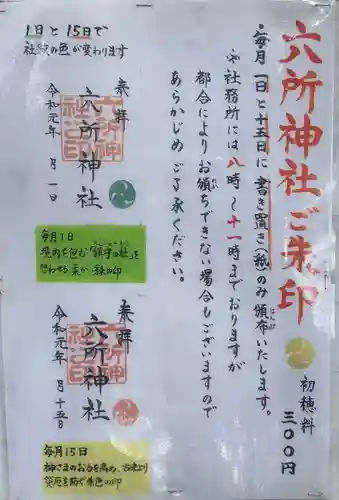 六所神社ご朱印
初穂料
三〇〇円
・毎月一日と十五日に書き置き(紙)のみ頒布いたします。
はんぷ
※社務所には八時〜十一時までおりますが
都合によりお頒ちできない場合もございますので
わか
あらかじめご了承ください。
1日と15日で
社紋の色が変わります
奉拝
六所神社
令和元年 月一日
毎月1日
境内を包む「鎮守の杜」を
想わせる 緑の印
奉拝
六所神社
令和元年 月十五日
毎月15日
神さまのお力を高め、古来より
災厄を防ぐ朱色の印